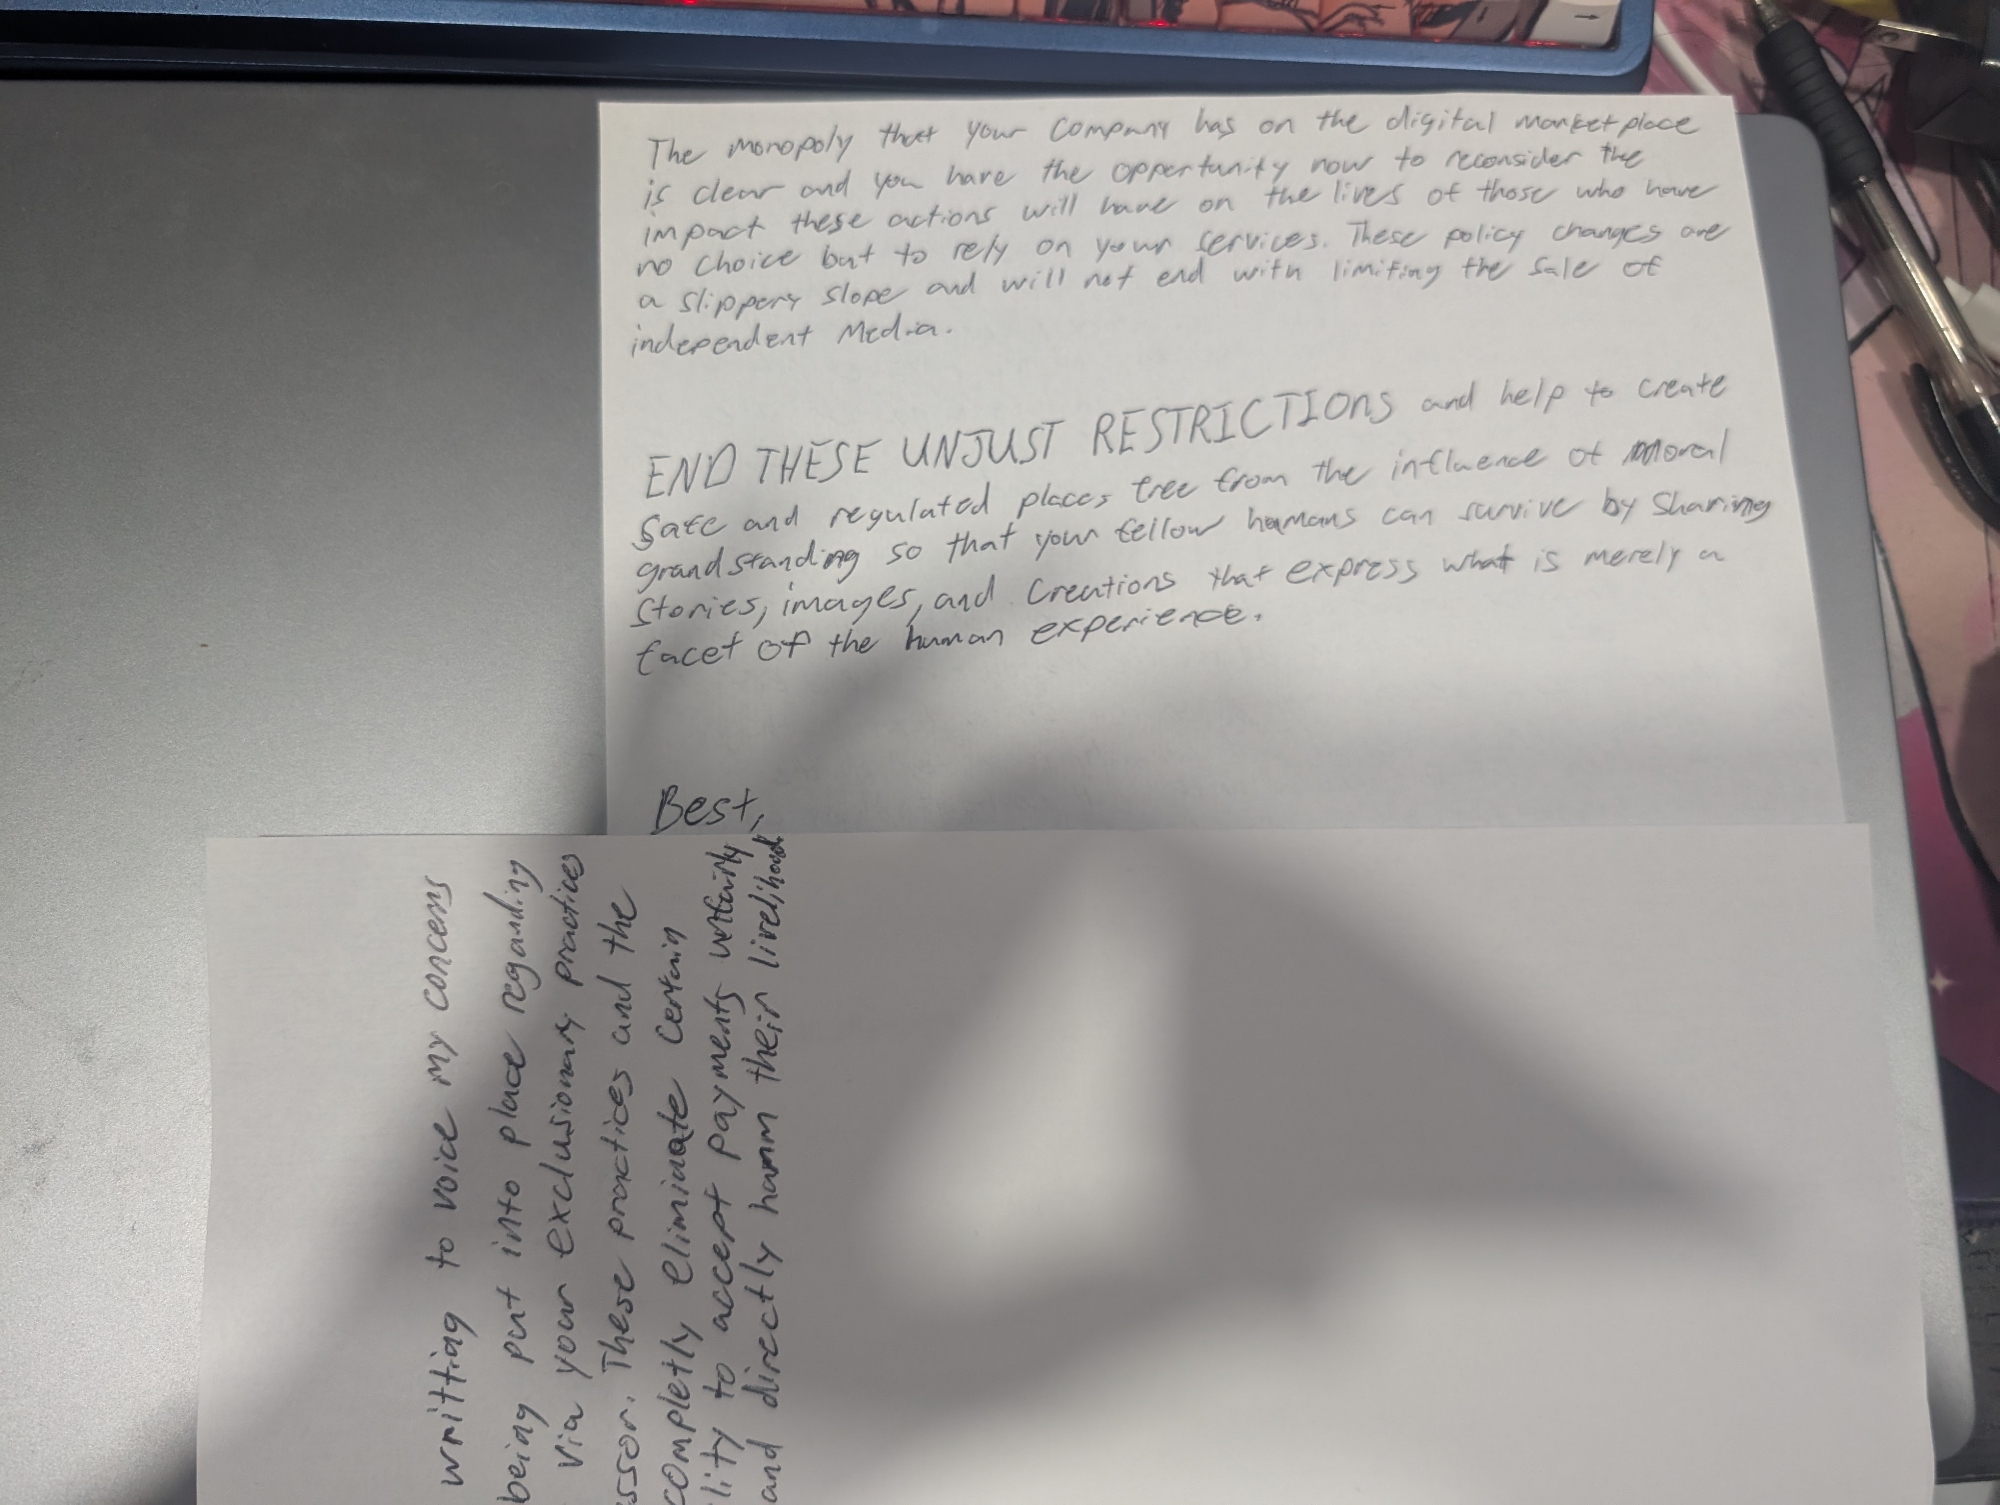 The monopoly that your company has on the digital marketplace
is clear and you have the opportunity now to reconsider the
impact these actions will have on the lives of those who have
no choice but to rely on your services. These policy changes are
a slippery slope and will not end with limiting the sale of
independent Media.
END THESE UNJUST RESTRICTIONS and help to create
safe and regulated places free from the influence of moral
grandstanding so that your fellow humans can survive by sharing
stories, images, and creations that express what is merely a
facet of the human experience.
Best,
writting to voice my concerns
being put into place regarding
via your exclusionary practices
ssor. These practices and the
completly eliminate certain
lity to accept payments unfairly
and directly harm their livelihood